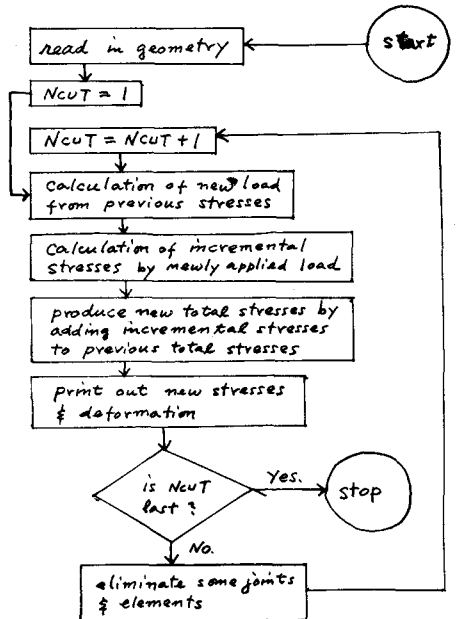 start
read in geometry
NCUT = 1
NCUT = NCUT + 1
calculation of new load
from previous stresses
calculation of incremental
stresses by newly applied load
produce new total stresses by
adding incremental stresses
to previous total stresses
print out new stresses
& deformation
is NCUT
last ?
Yes.
stop
No.
eliminate some joints
& elements